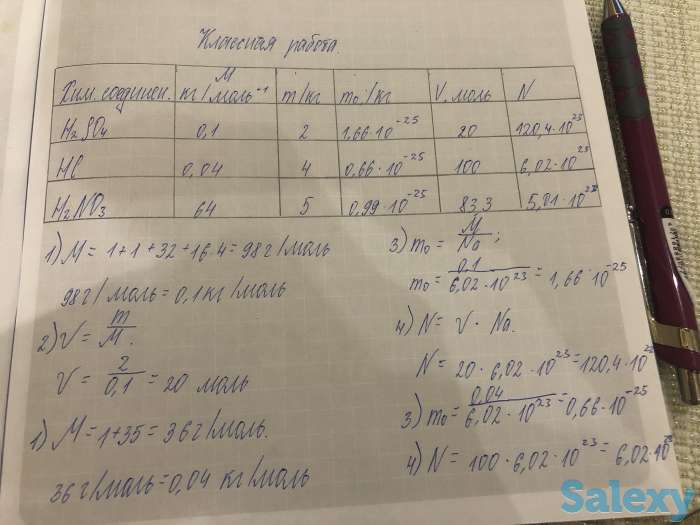 Классная работа.
Хим. соединен. M кг/моль⁻¹ m/кг m₀/кг V, моль N
H₂SO₄ 0,1 2 1,66·10⁻²⁵ 20 120,4·10²³
HCl 0,04 4 0,66·10⁻²⁵ 100 6,02·10²⁵
H₂NO₃ 64 5 0,99·10⁻²⁵ 83,3
1) M = 1+1+32+16·4 = 98 г/моль
98 г/моль = 0,1 кг/моль
2) V = m/M.
V = 2/0,1 = 20 моль
1) M = 1+35 = 36 г/моль.
36 г/моль = 0,04 кг/моль
3) m₀ = M/Na;
m₀ = 0,1/6,02·10²³ = 1,66·10⁻²⁵
4) N = V · Na.
N = 20·6,02·10²³ = 120,4·10²³
3) m₀ = 0,04/6,02·10²³ = 0,66·10⁻²⁵
4) N = 100·6,02·10²³ = 6,02·10²⁵
Salexy